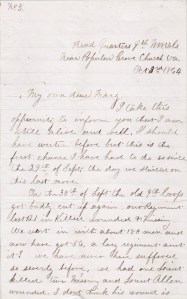 No 3.
Head Quarters 9th N.H. Vols
Near Popular Grove Church Va
Oct 3rd 1864
My own dear Mary
I take this
opportunity to inform you that I am
still alive and well. I should
have written before but this is the
first chance I have had to do so since
the 29th of Sept. the day we
this last move
On 30th of Sept the old 9th Corps
got badly cut up again our Regiment
lost killed wounded & missing
We went in with about 180 men and
now have got 86, a big regiment aint
it? we have never been suffered
so severely before, we had one
killed two missing and
wounded. I dont think his wound is